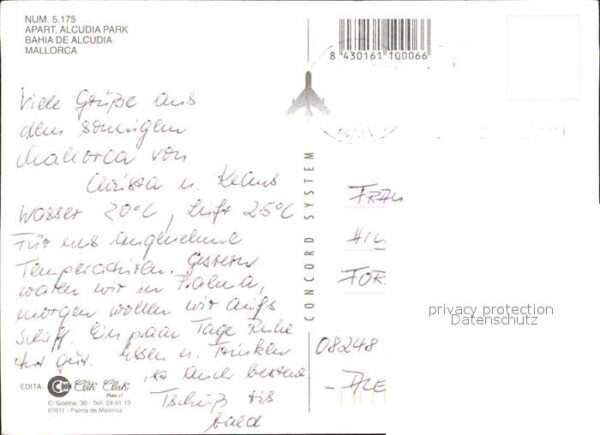 NUM. 5.175
APART. ALCUDIA PARK
BAHIA DE ALCUDIA
MALLORCA
8 430161 100066
Viele Grüße aus
dem sonnigen
Mallorca von
Christa u. Klaus
Wasser 20°C, Luft 25°C
Für uns angenehme
Temperaturen. Gestern
waren wir in Palma,
morgen wollen wir aufs
Schiff. Ein paar Tage Ruhe
tut gut. Essen u. Trinken
ist auch bestens
Tschüß bis
bald
EDITA:
Clik Clak
C/ Goethe, 30 - Tel. 28 91 13
07011 - Palma de Mallorca
CONCORD SYSTEM
FRAU
HIL
FOR
08248
privacy protection
Datenschutz